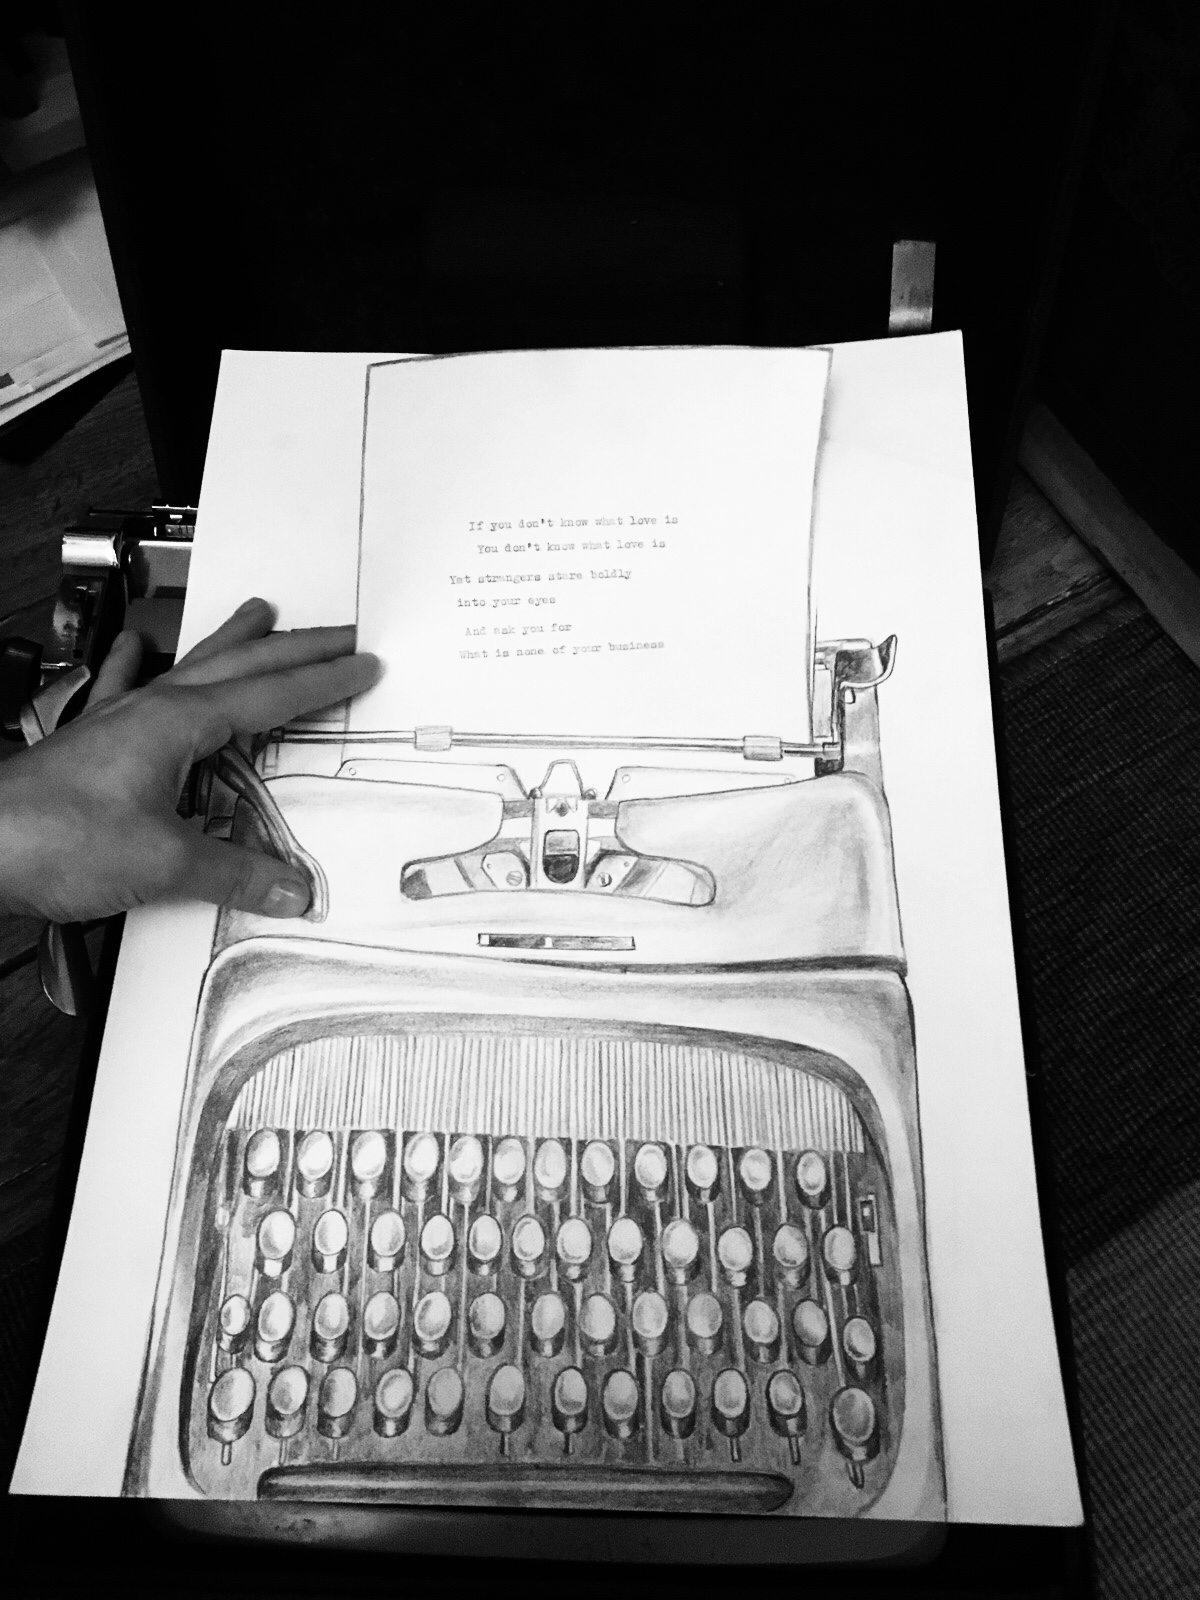 If you don't know what love is
You don't know what love is
Yet strangers stare boldly
into your eyes
And ask you for
What is none of your business